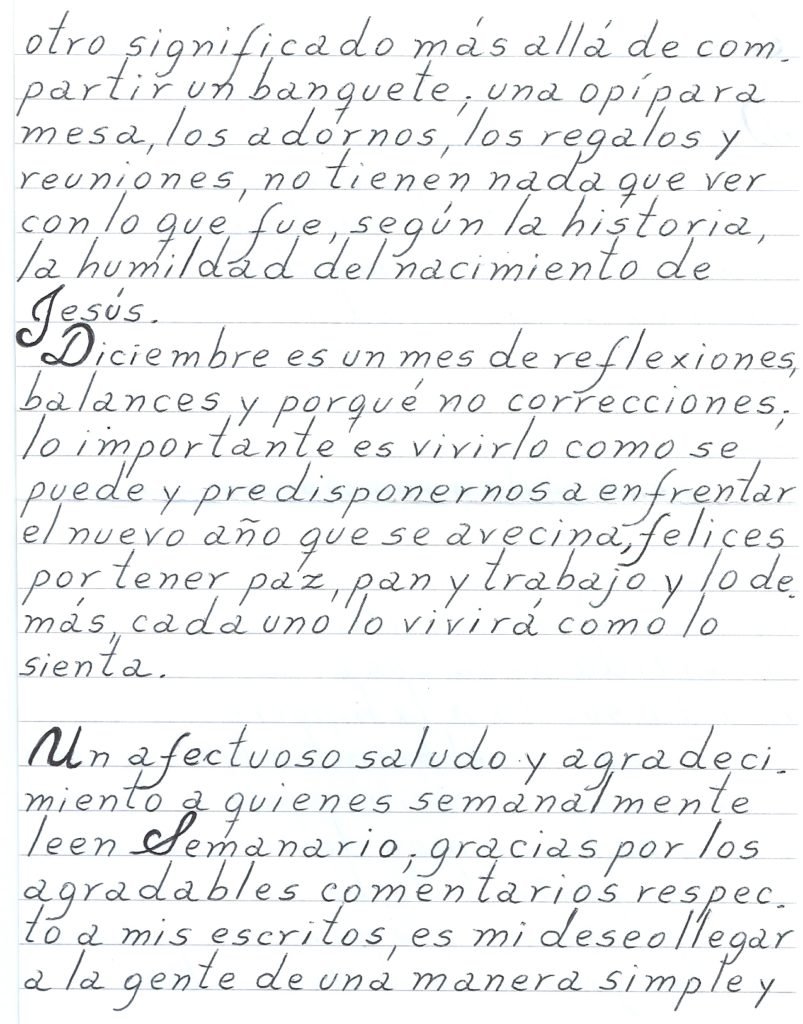 otro significado más allá de com-
partir un banquete; una opípara
mesa, los adornos, los regalos y
reuniones, no tienen nada que ver
con lo que fue, según la historia,
la humildad del nacimiento de
Jesús.
Diciembre es un mes de reflexiones,
balances y porqué no correcciones;
lo importante es vivirlo como se
puede y predisponernos a enfrentar
el nuevo año que se avecina, felices
por tener paz, pan y trabajo y lo de-
más, cada uno lo vivirá como lo
sienta.
Un afectuoso saludo y agradeci-
miento a quienes semanalmente
leen Semanario; gracias por los
agradables comentarios respec-
to a mis escritos, es mi deseo llegar
a la gente de una manera simple y